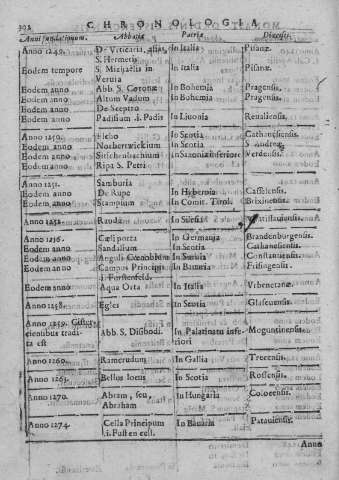 392 CHRONOLOGIA
Anni fundationum. Abbatiæ Patriæ Diœceses.
Anno 1249. De Viticaria, alias, In Italia Pisanæ.
S. Hermetis
Eodem tempore S. Michaëlis in In Italia Pisanæ.
Verruia
Eodem anno Abb. S. Coronæ In Bohemia Pragensis.
Eodem anno Altum Vadum In Bohemia Pragensis.
Eodem anno De Sceptro
Eodem anno Padisium .i. Padis In Liuonia Reualiensis.
Anno 1250. In Scotia Cathanensis.
Eodem anno Northerwickium In Scotia S. Andreæ
Eodem anno Sittichenbachium In Saxonia inferiore Verdensis.
Eodem anno Ripa S. Petri
Anno 1251. Samboria
Eodem anno De Rupe In Hybernia Casselensis.
Eodem anno Stampium In Comit. Tirol. Brixinensis.
Anno 1252. Rauda In Silesia Vratislauiensis.
Anno 1256. Cœli porta In Germania Brandenburgensis.
Eodem anno Sandalium In Scotia Cathanensis.
Eodem anno Anguli Cœnobium In Sueuia Constantiensis.
Eodem anno Campus Principis In Bauaria Frisingensis.
.i. Furstenfeld.
Eodem anno Aqua Orta In Italia Vrbenetanæ.
Anno 1258. Egles In Scotia Glascuensis.
Anno 1259. Cister-
ciensibus tradi- Abb. S. Disibodi. In Palatinatu infe- Moguntinensis.
ta est riori
Anno 1260. Ramerudum In Gallia Trecensis.
Anno 1265. Bellus locus In Scotia Rossensis.
Anno 1270. Abram, seu, In Hungaria Colocensis.
Abraham
Anno 1274. Cella Principum In Bauaria Patauiensis.
.i. Fürstenzell.
Anno